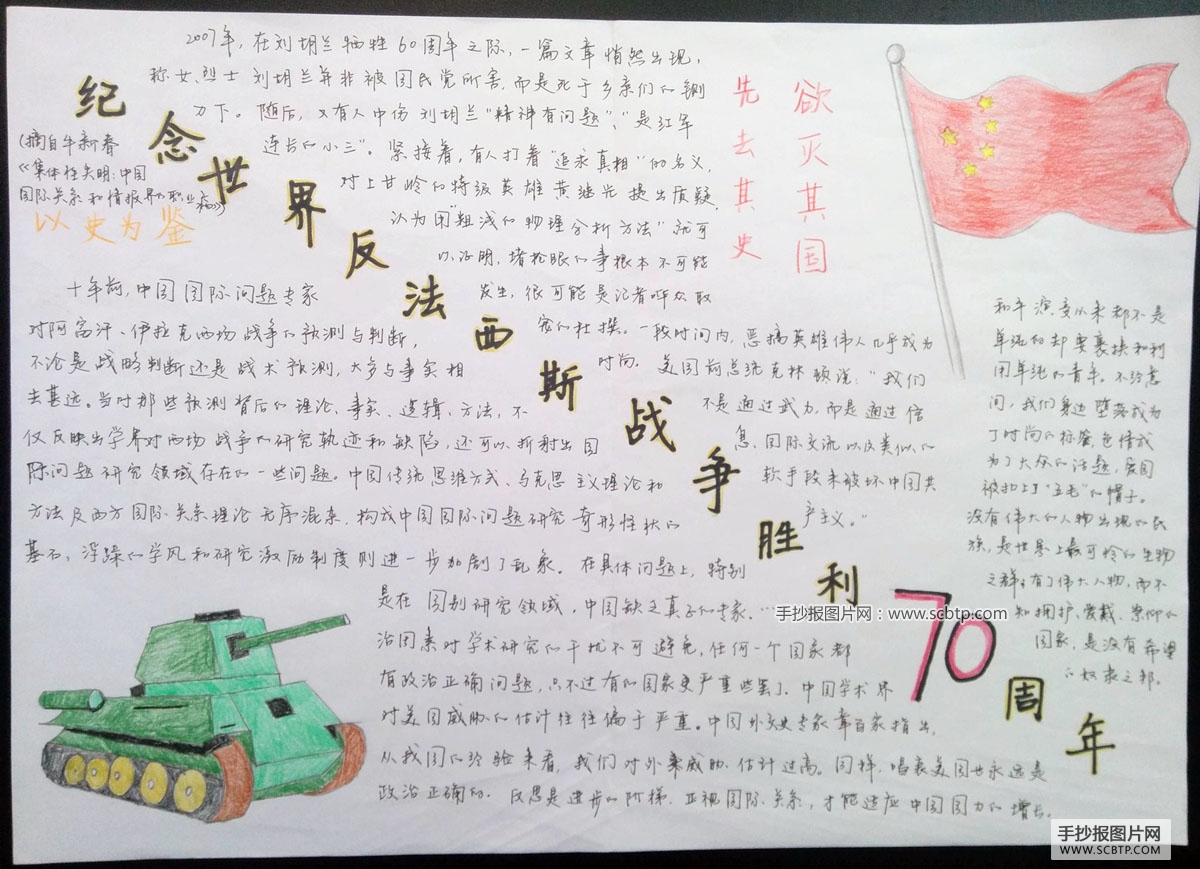 纪念世界反法西斯战争胜利70周年
2007年，在刘胡兰牺牲60周年之际，一篇文章悄然出现，
称女烈士刘胡兰并非被国民党所害，而是死于乡亲们的铡
刀下。随后，又有人中伤刘胡兰“精神有问题”、“是红军
连长的小三”。紧接着，有人打着“追求真相”的名义，
对上甘岭的特级英雄黄继光提出质疑，
认为用“粗浅的物理分析方法”就可
以证明，堵枪眼的事根本不可能
发生，很可能是记者哗众取
宠的杜撰。一段时间内，恶搞英雄伟人几乎成为
时尚。美国前总统克林顿说：“我们
不是通过武力，而是通过信
息、国际交流以及类似的
软手段来破坏中国共
产主义。”
先去其史
欲灭其国
(摘自牛新春
《集体性失明：中国
国际关系和情报界的职业病》)
以史为鉴
十年前，中国国际问题专家
对阿富汗、伊拉克两场战争的预测与判断，
不论是战略判断还是战术预测，大多与事实相
去甚远。当时那些预测背后的理论、事实、逻辑、方法，不
仅反映出学界对两场战争的研究轨迹和缺陷，还可以折射出国
际问题研究领域存在的一些问题。中国传统思维方式、马克思主义理论和
方法及西方国际关系理论无序混杂，构成中国国际问题研究奇形怪状的
基石，浮躁的学风和研究激励制度则进一步加剧了乱象。在具体问题上，特别
是在国别研究领域，中国缺乏真正的专家。…
治因素对学术研究的干扰不可避免，任何一个国家都
有政治正确问题，只不过有的国家更严重些罢了。中国学术界
对美国威胁的估计往往偏于严重。中国外交史专家章百家指出，
从我国的经验来看，我们对外来威胁估计过高。同样，唱衰美国也永远是
政治正确的。反思是进步的阶梯，正视国际关系，才能适应中国国力的增长。
和平演变从来都不是
单纯的却要裹挟和利
用单纯的青年。不经意
间，我们身边堕落成为
了时尚的标签，色情成
为了大众的话题，爱国
被扣上了“五毛”的帽子。
没有伟大的人物出现的民
族，是世界上最可怜的生物
之群；有了伟大人物，而不
知拥护、爱戴、崇仰的
国家，是没有希望
的奴隶之邦。
手抄报图片网：www.scbtp.com
手抄报图片网
WWW.SCBTP.COM